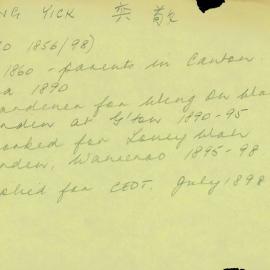 NG YICK
O 1856/98)
1860 - parents in Canton.
a 1890
ardener for Wing On Wa
nden at G'ton 1890-95
orked for Loney Wah
nden, Wanneroo 1895-98
plied for CEDT. July 1898